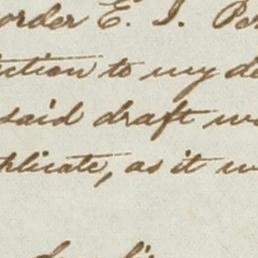 order E. I. Pe
ction to my de
said draft w
plicate, as it w